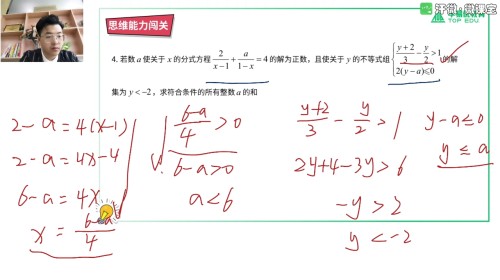 思维能力闯关
TOP EDU
4. 若数 a 使关于 x 的分式方程 2/(x-1) + a/(1-x) = 4 的解为正数，且使关于 y 的不等式组 { (y+2)/3 - y/2 > 1 2(y-a)≤0 的解
集为 y < -2，求符合条件的所有整数 a 的和
2-a=4(x-1)
2-a=4x-4
6-a=4x
x = (6-a)/4
(6-a)/4 > 0
6-a>0
a<6
(y+2)/3 - y/2 > 1
2y+4-3y>6
-y>2
y<-2
y-a≤0
y≤a